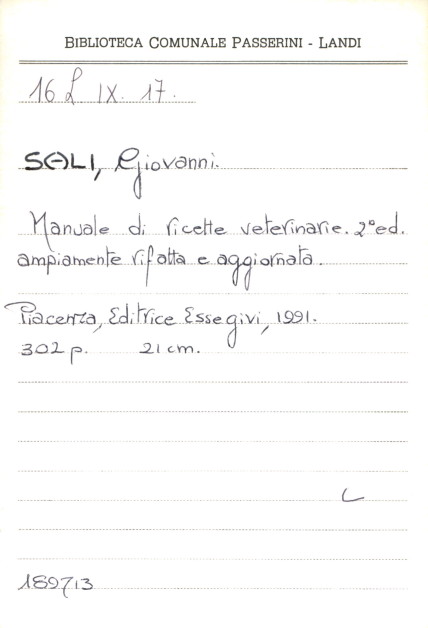 BIBLIOTECA COMUNALE PASSERINI - LANDI
16 L IX. 17.
SALI, Giovanni.
Manuale di ricette veterinarie. 2° ed.
ampiamente rifatta e aggiornata.
Piacenza, Editrice Essegivi, 1991.
302 p. 21 cm.
L
189713